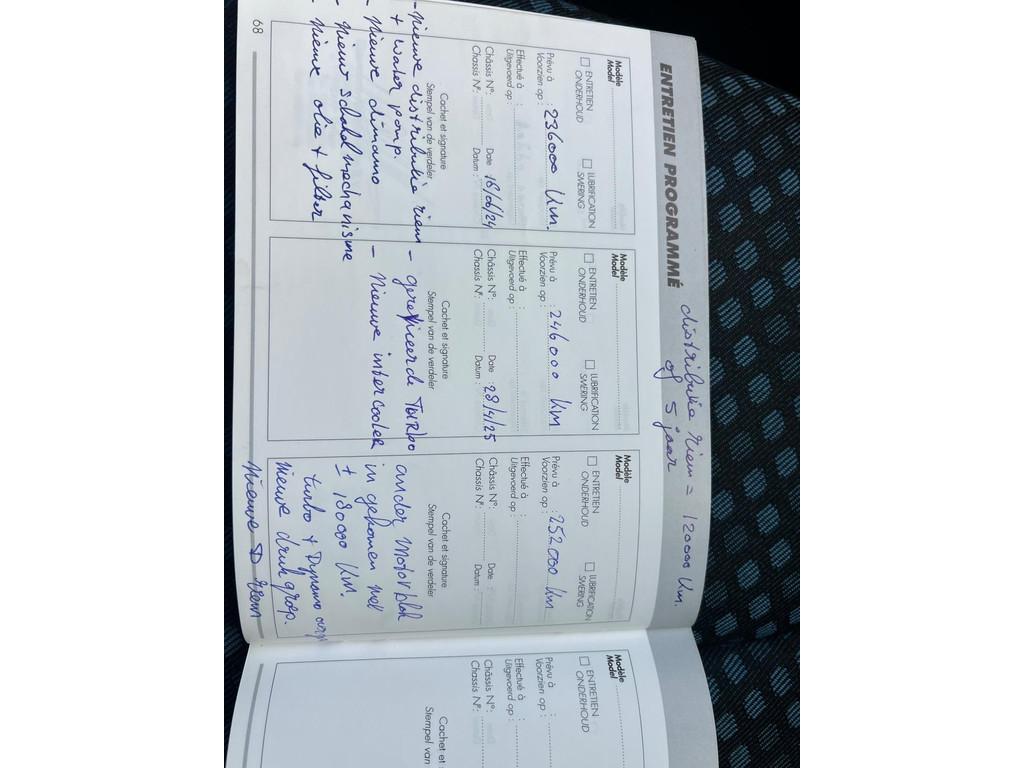 ENTRETIEN PROGRAMMÉ
distributie riem = 120000 Km
of 5 jaar
Modèle
Model
ENTRETIEN
ONDERHOUD
LUBRIFICATION
SMERING
Prévu à
Voorzien op : 236000 Km.
Effectué à :
Uitgevoerd op :
Châssis N°: Date 18/06/24
Chassis N°: Datum :
Cachet et signature
Stempel van de verdeler
- Nieuwe distributie riem
+ water pomp.
- Nieuwe dinamo
- Nieuw schakel mechanisme
- Nieuwe olie + filter
Modèle
Model
ENTRETIEN
ONDERHOUD
LUBRIFICATION
SMERING
Prévu à
Voorzien op : 246000 Km
Effectué à :
Uitgevoerd op :
Châssis N°: Date : 28/4/25
Chassis N°: Datum :
Cachet et signature
Stempel van de verdeler
- gereviceerde TURBO
- Nieuwe intercooler
Modèle
Model
ENTRETIEN
ONDERHOUD
LUBRIFICATION
SMERING
Prévu à
Voorzien op : 252000 Km
Effectué à :
Uitgevoerd op :
Châssis N°: Date :
Chassis N°: Datum :
Cachet et signature
Stempel van de verdeler
ander Motorblok
in gekomen met
± 180000 Km
turbo + Dynamo
Nieuwe druk groep.
Nieuwe D riem
68
Modèle
Model
ENTRETIEN
ONDERHOUD
Prévu à
Voorzien op :
Effectué à :
Uitgevoerd op :
Châssis N°:
Chassis N°:
Cachet et
Stempel van